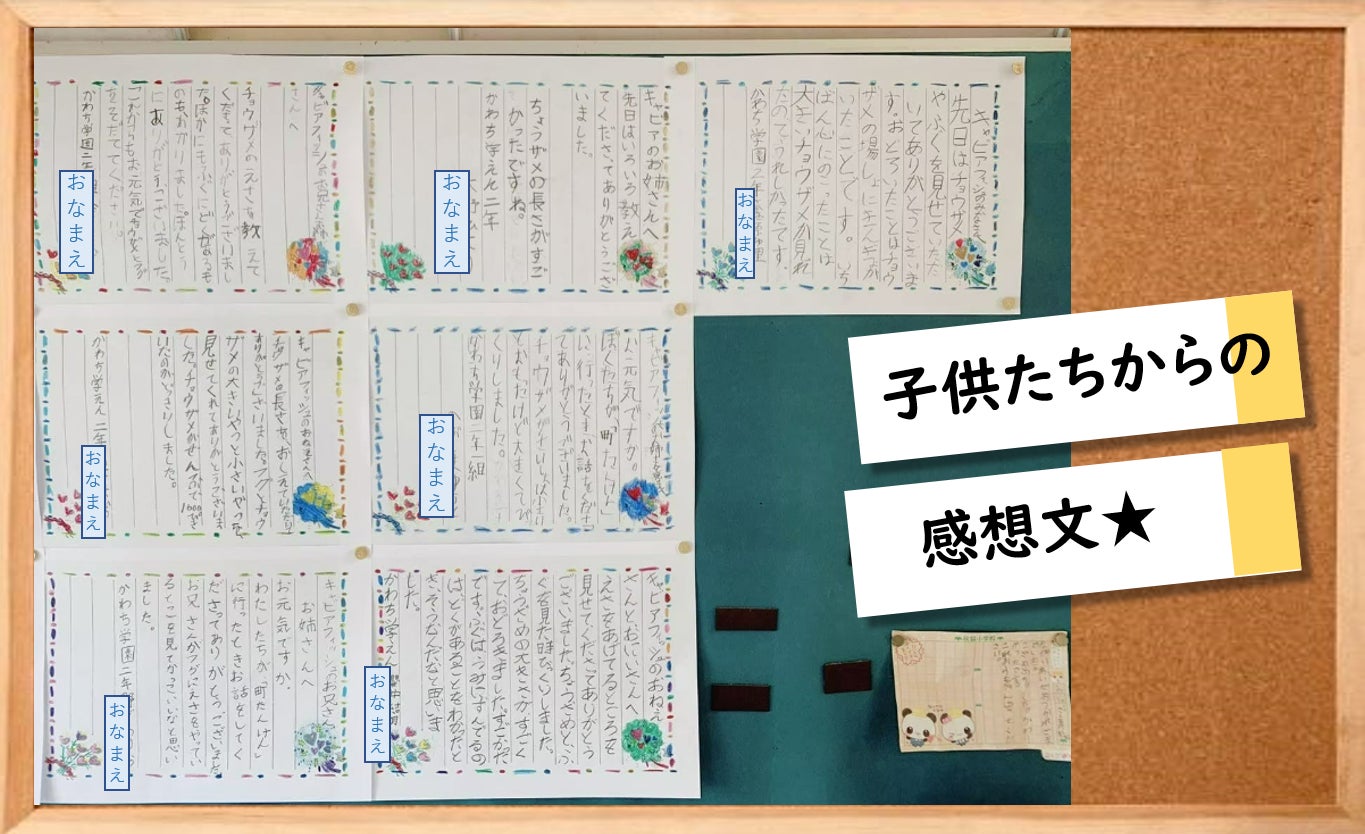 子供たちからの
感想文★
キャビアフィッシュのみなさんへ
先日はチョウザメ
やふぐを見せていただ
いてありがとうございま
す。おどろいたことはチョウ
ザメの場しょにチンチンが
いたことです。いち
ばん心にのこったことは
大きいチョウザメが見れ
たのでうれしかったです。
かわち学園二年
おなまえ
キャビアのお姉さんへ
先日はいろいろ教え
てくださってありがとうござ
いました。
ちょうザメの長さがすご
かったですね。
かわち学えん二年
おなまえ
キャビアフィッシュのお兄さんお姉
さんへ
チョウザメのえさを教えて
くださってありがとうございまし
た。ほかにもふぐにどくがあるも
のもわかりました。ほんとう
にありがとうございました。
これからもお元気でちょうざめ
をそだててください。
かわち学園二年
おなまえ
お元気ですか。
ぼくたちが「町たんけん」
に行ったときお話をくださっ
てありがとうございました。
チョウザメがさいしょは小さい
とおもったけど大きくてびっ
くりしました。
かわち学園二年一組
おなまえ
キャビアフィッシュのおねえさんへ
チョウザメの長さをおしえていただり
ありがとうございました。フグとチョウ
ザメの大きいやつと小さいやつを
見せてくれてありがとうございま
した。チョウザメがぜんぶで1000ぴき
いたのがびっくりしました。
かわち学えん二年
おなまえ
キャビアフィッシュのおねえ
さんとおにいさんへ
えさをあげてるところを
見せてくださってありがとう
ございました。ちょうざめとふ
ぐを見た時びっくりしました。
ちょうざめの大きさがすごく
て、おどろきました。すごかった
です。ふぐは、うみにすんでるの
はどくがあることをわかったと
き、そうなんだなと思いま
した。
かわち学えん
おなまえ
キャビアフィッシュのお兄さん
お姉さんへ
お元気ですか。
わたしたちが、「町たんけん」
に行ったときお話をしてく
ださってありがとうございました。
お兄さんがフグにえさをやってい
るとこを見てかっこいいなと思い
ました。
かわち学園二年
おなまえ